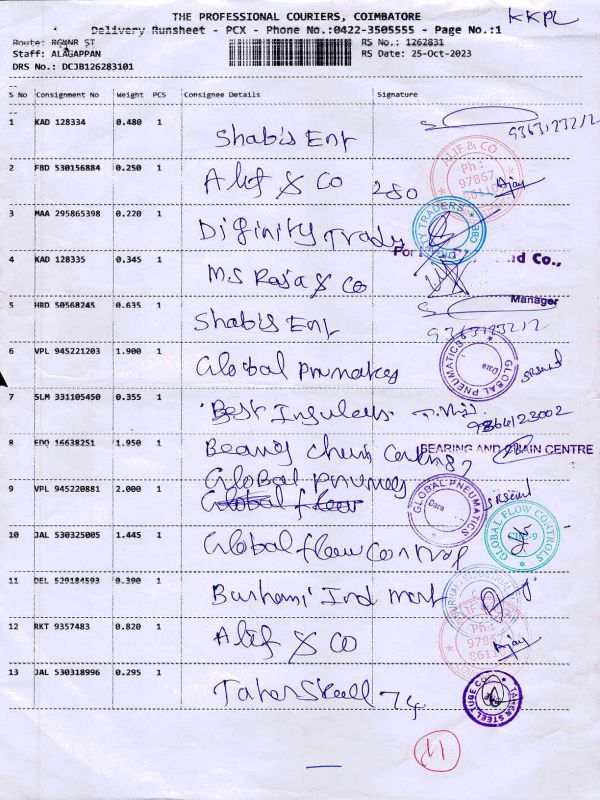 THE PROFESSIONAL COURIERS, COIMBATORE
KKPL
Delivery Runsheet - PCX - Phone No.:0422-3505555 - Page No.:1
Route: RGWNR ST RS No.: 1262831
Staff: ALAGAPPAN RS Date: 25-Oct-2023
DRS No.: DCJB126283101
S No Consignment No Weight PCS Consignee Details Signature
1 KAD 128334 0.480 1 Shabis Ent
2 FBD 530156884 0.250 1 Alif & Co 280 Ajay
ALIF & CO Ph: 97867
3 MAA 295865398 0.220 1 Diginity Trady
DIGNITY TRADERS CBE
4 KAD 128335 0.345 1 M.S Raja & Co
For and Co.,
Manager
5 HRD 50568245 0.635 1 Shabis Ent
6 VPL 945221203 1.900 1 Global Pnumatics
GLOBAL PNEUMATICS Date
7 SLM 331105450 0.355 1 Best
8 EDQ 16638251 1.950 1 Bearing Chain
BEARING AND CHAIN CENTRE
Global
9 VPL 945220881 2.000 1 Global flow
GLOBAL PNEUMATICS Date
10 JAL 530325005 1.445 1 Global flow Control
GLOBAL FLOW CONTROLS CBE-9
11 DEL 529184593 0.390 1 Burhani Ind Mart
12 RKT 9357483 0.820 1 Alif & Co Ajay
Ph: 97867
13 JAL 530318996 0.295 1 Taher Steell 74
TAHER STEEL TUBE CO
11